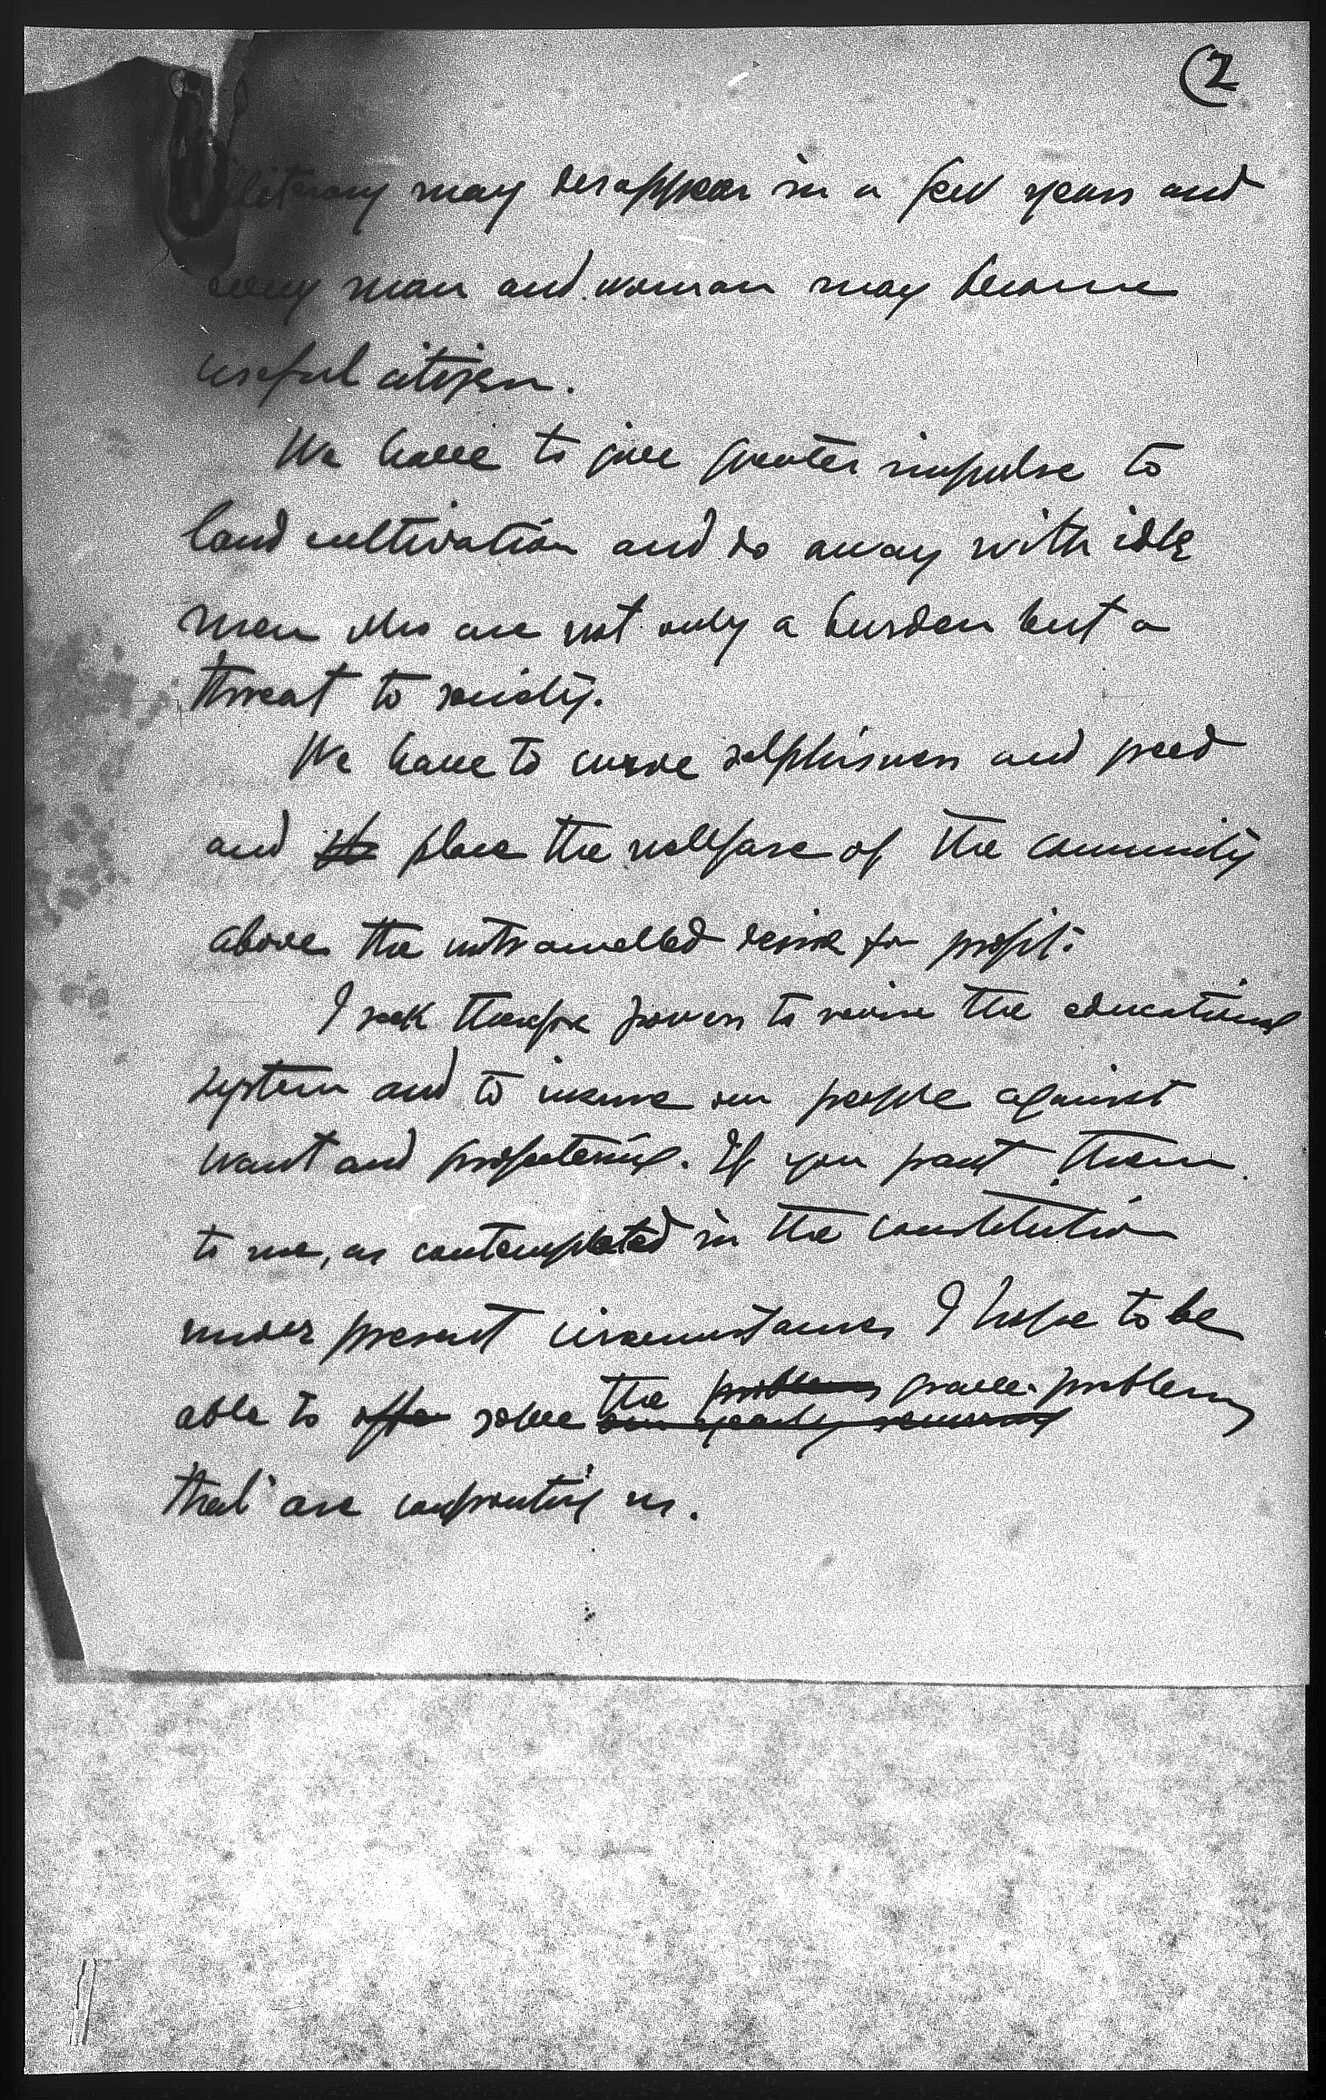 (2
illiteracy may desappear in a few years and
every man and woman may become
useful citizen.
We have to give greater impulse to
land cultivation and do away with idle
men who are not only a burden but a
threat to society.
We have to curve selphisness and greed
and the place the wellfare of the community
above the untramelled desire for profit.
I seek therefore powers to revise the educational
system and to insure our people against
want and profeetering. If you grant them
to me, as contemplated in the constitution
under present circumstances I hope to be
able to offer solve the problems grave problems
our yearly recurring
that are confronting us.